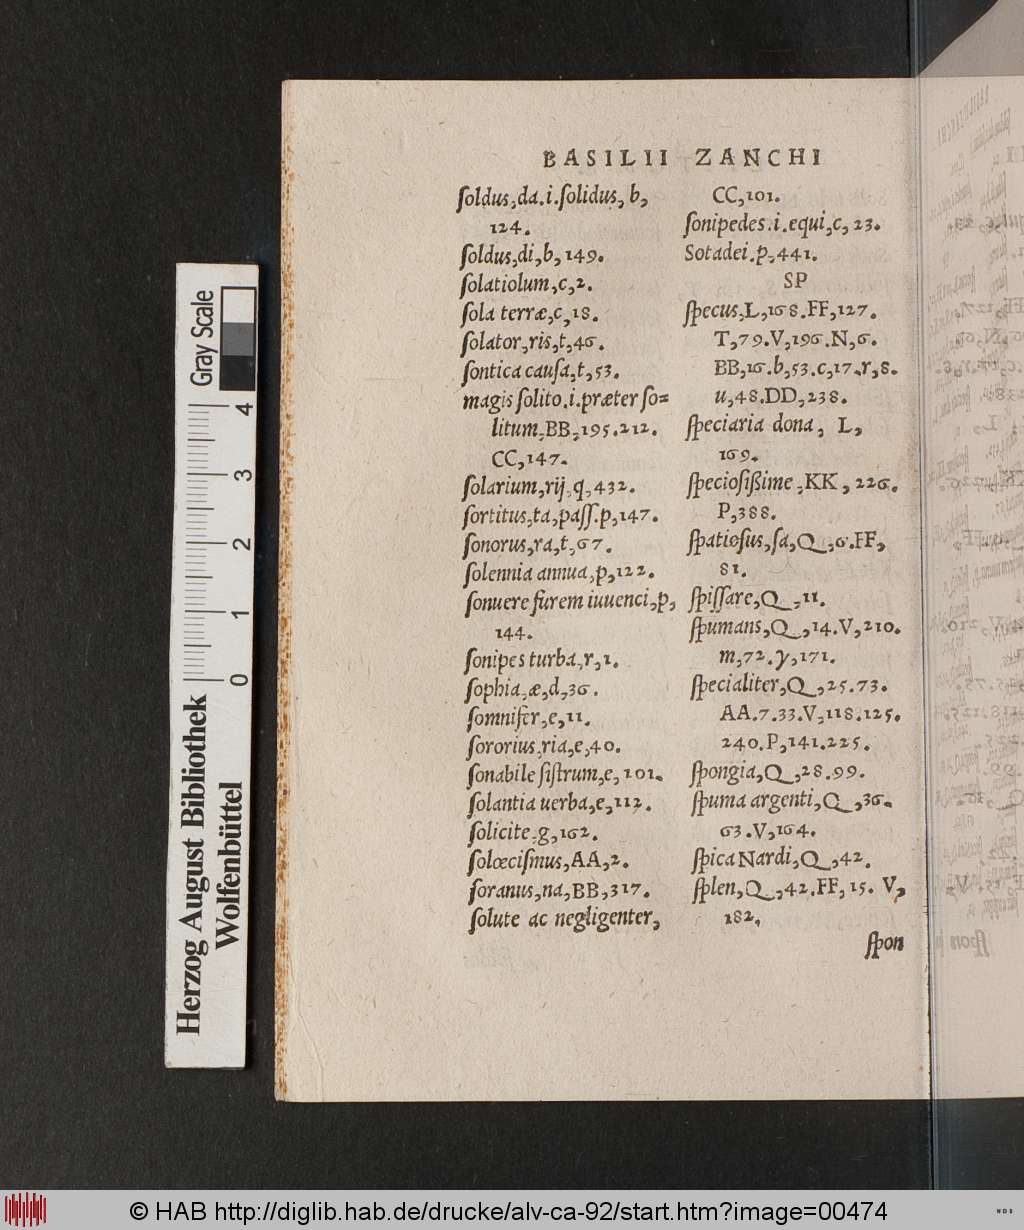 BASILII ZANCHI
ſoldus,da.i.ſolidus, b,
124.
ſoldus,di,b,149.
ſolatiolum,c,2.
ſola terræ,c,18.
ſolator,ris,t,46.
ſontica cauſa,t,53.
magis ſolito.i.præter ſo=
litum,BB,195.212.
CC,147.
ſolarium,rij,q,432.
ſortitus,ta,paſſ.p,147.
ſonorus,ra,t,67.
ſolennia annua,p,122.
ſonuere furem iuuenci,p,
144.
ſonipes turba,r,1.
ſophia,æ,d,36.
ſomnifer,e,11.
ſororius,ria,e,40.
ſonabile ſiſtrum,e,101.
ſolantia uerba,e,112.
ſolicite,g,162.
ſolœciſmus,AA,2.
ſoranus,na,BB,317.
ſolute ac negligenter,
CC,101.
ſonipedes.i.equi,c,23.
Sotadei.p,441.
SP
ſpecus,L,168.FF,127.
T,79.V,196.N,6.
BB,16.b,53.c,17.r,8.
u,48.DD,238.
ſpeciaria dona, L,
169.
ſpecioſißime,KK,226.
P,388.
ſpatioſus,ſa,Q,6.FF,
81.
ſpiſſare,Q,11.
ſpumans,Q,14.V,210.
m,72.y,171.
ſpecialiter,Q,25.73.
AA.7.33.V,118.125.
240.P,141.225.
ſpongia,Q,28.99.
ſpuma argenti,Q,36.
63.V,164.
ſpica Nardi,Q,42.
ſplen,Q,42.FF,15. V,
182.
ſpon
Gray Scale
4
3
2
1
0
Herzog August Bibliothek
Wolfenbüttel
© HAB http://diglib.hab.de/drucke/alv-ca-92/start.htm?image=00474
WDB